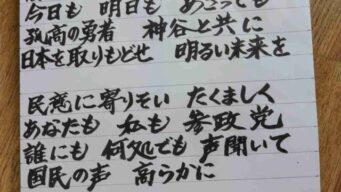 今日も 明日も あさっても
孤高の勇者 神谷と共に
日本を取りもどせ 明るい未来を
民意に寄りそい たくましく
あなたも 私も 参政党
誰にも 何処でも 声聞いて
国民の声 高らかに